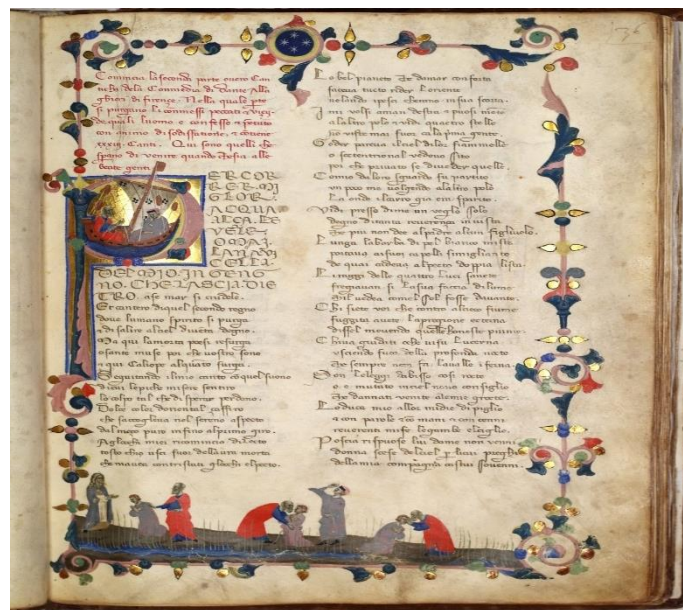 Comincia la seconda parte overo Can
tica dela Commedia di Dante Alla
ghieri di firenze. Nella quale pte
si purgano i commessi peccati e vizi
de quali l uomo e confesso e pentuto
con animo di sodisfazione. e contiene
xxxiij. Canti. Qui sono quelli che
sperano di venire quando che sia alle
beate genti.
PER COR
RER MI
GLIOR
ACQUA
ALÇA LE
VELE
OMAI
LA NAVI
CELLA
DEL MIO IN GENG
NO. CHE LASCIA DIE
TRO. a se mar si crudele.
Et cantero di quel secondo regno
dove lumano spirito si purga
e di salire al ciel diventa degno.
Ma qui la morta poesi resurga
o sante muse poi che vostro sono
e qui Caliope alquanto surga.
Seguitando il mio canto co quel suono
di cui le piche misere sentiro
lo colpo tal che disperar perdono.
Dolce color doriental zaffiro
che saccoglieva nel sereno aspecto
del meço puro infino al primo giro.
Agliocchi miei ricomincio dilecto
tosto chio usci fuor dellaura morta
che mavea contristati gliocchi el pecto.
Lo bel pianeto che damar conforta
faceva tucto rider loriente
velando i pesci cherano in sua scorta.
I mi volsi a man destra e puosi mente
alaltro polo e vidi quatro stelle
no viste mai fuor cala prima gente.
Goder pareva il ciel di lor fiammelle
o settentrional vedovo sito
poi che privato se di veder quelle.
Como da loro sguardo fu partito
un poco me volgendo alaltro polo
la onde il carro gia era sparito.
Vidi presso di me un veglio solo
degno di tanta reverença in vista
che piu non dee al padre alcun figliuolo.
Lunga la barba e di pel bianco mista
portava a suoi capelli simigliante
de quai cadeva al pecto doppia lista.
Li raggi delle quatro luci sancte
fregiavan si la sua faccia di lume
chil vedea comel sol fosse davante.
Chi siete voi che contro al cieco fiume
fuggita avete la pregione ecterna
dissel movendo quelle honeste piume.
Chi va guidati o che vi fu lucerna
uscendo fuor della profonda nocte
che sempre nera fa la valle inferna.
Son le leggi dabisso cosi rocte
o e mutato in ciel novo consiglio
che dannati venite ale mie grocte.
Lo duca mio allor mi die di piglio
e con parole e con mani e con cenni
reverenti mi fe le gambe el ciglio.
Poscia rispuose lui da me non venni
donna scese del ciel per li cui prieghi
della mia compagnia costui sovenni.